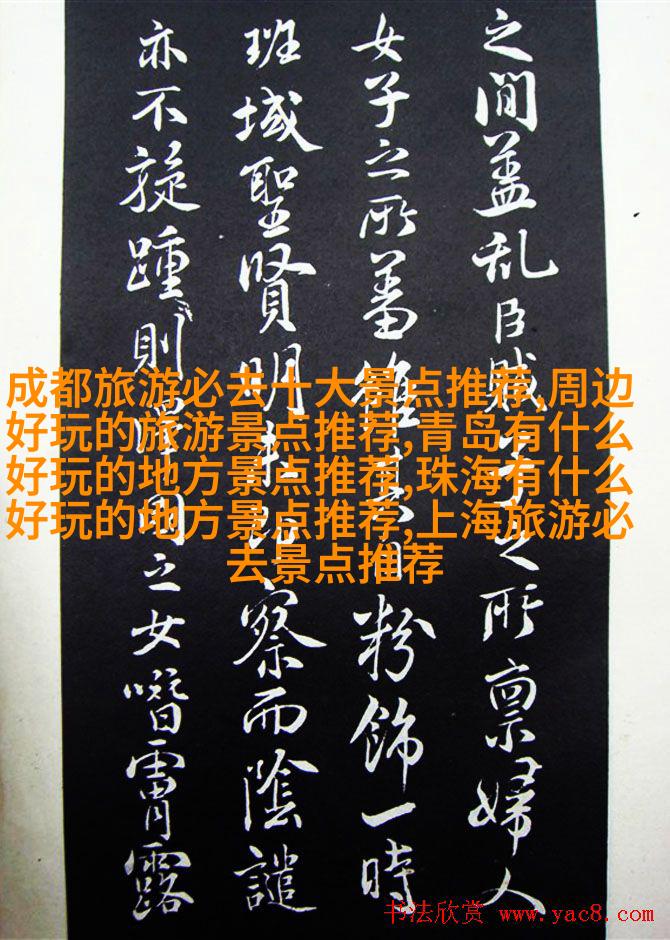 之間盖乱臣賊之所禀婦人
女子之所蓄雖自粉飾一時
班域聖賢明察而陰譴
亦不旋踵則之女噆霄露
成都旅游必去十大景点推荐,周边
好玩的旅游景点推荐,青岛有什么
好玩的地方景点推荐,珠海有什么
好玩的地方景点推荐,上海旅游必
去景点推荐
书法欣赏 www.yac8.com